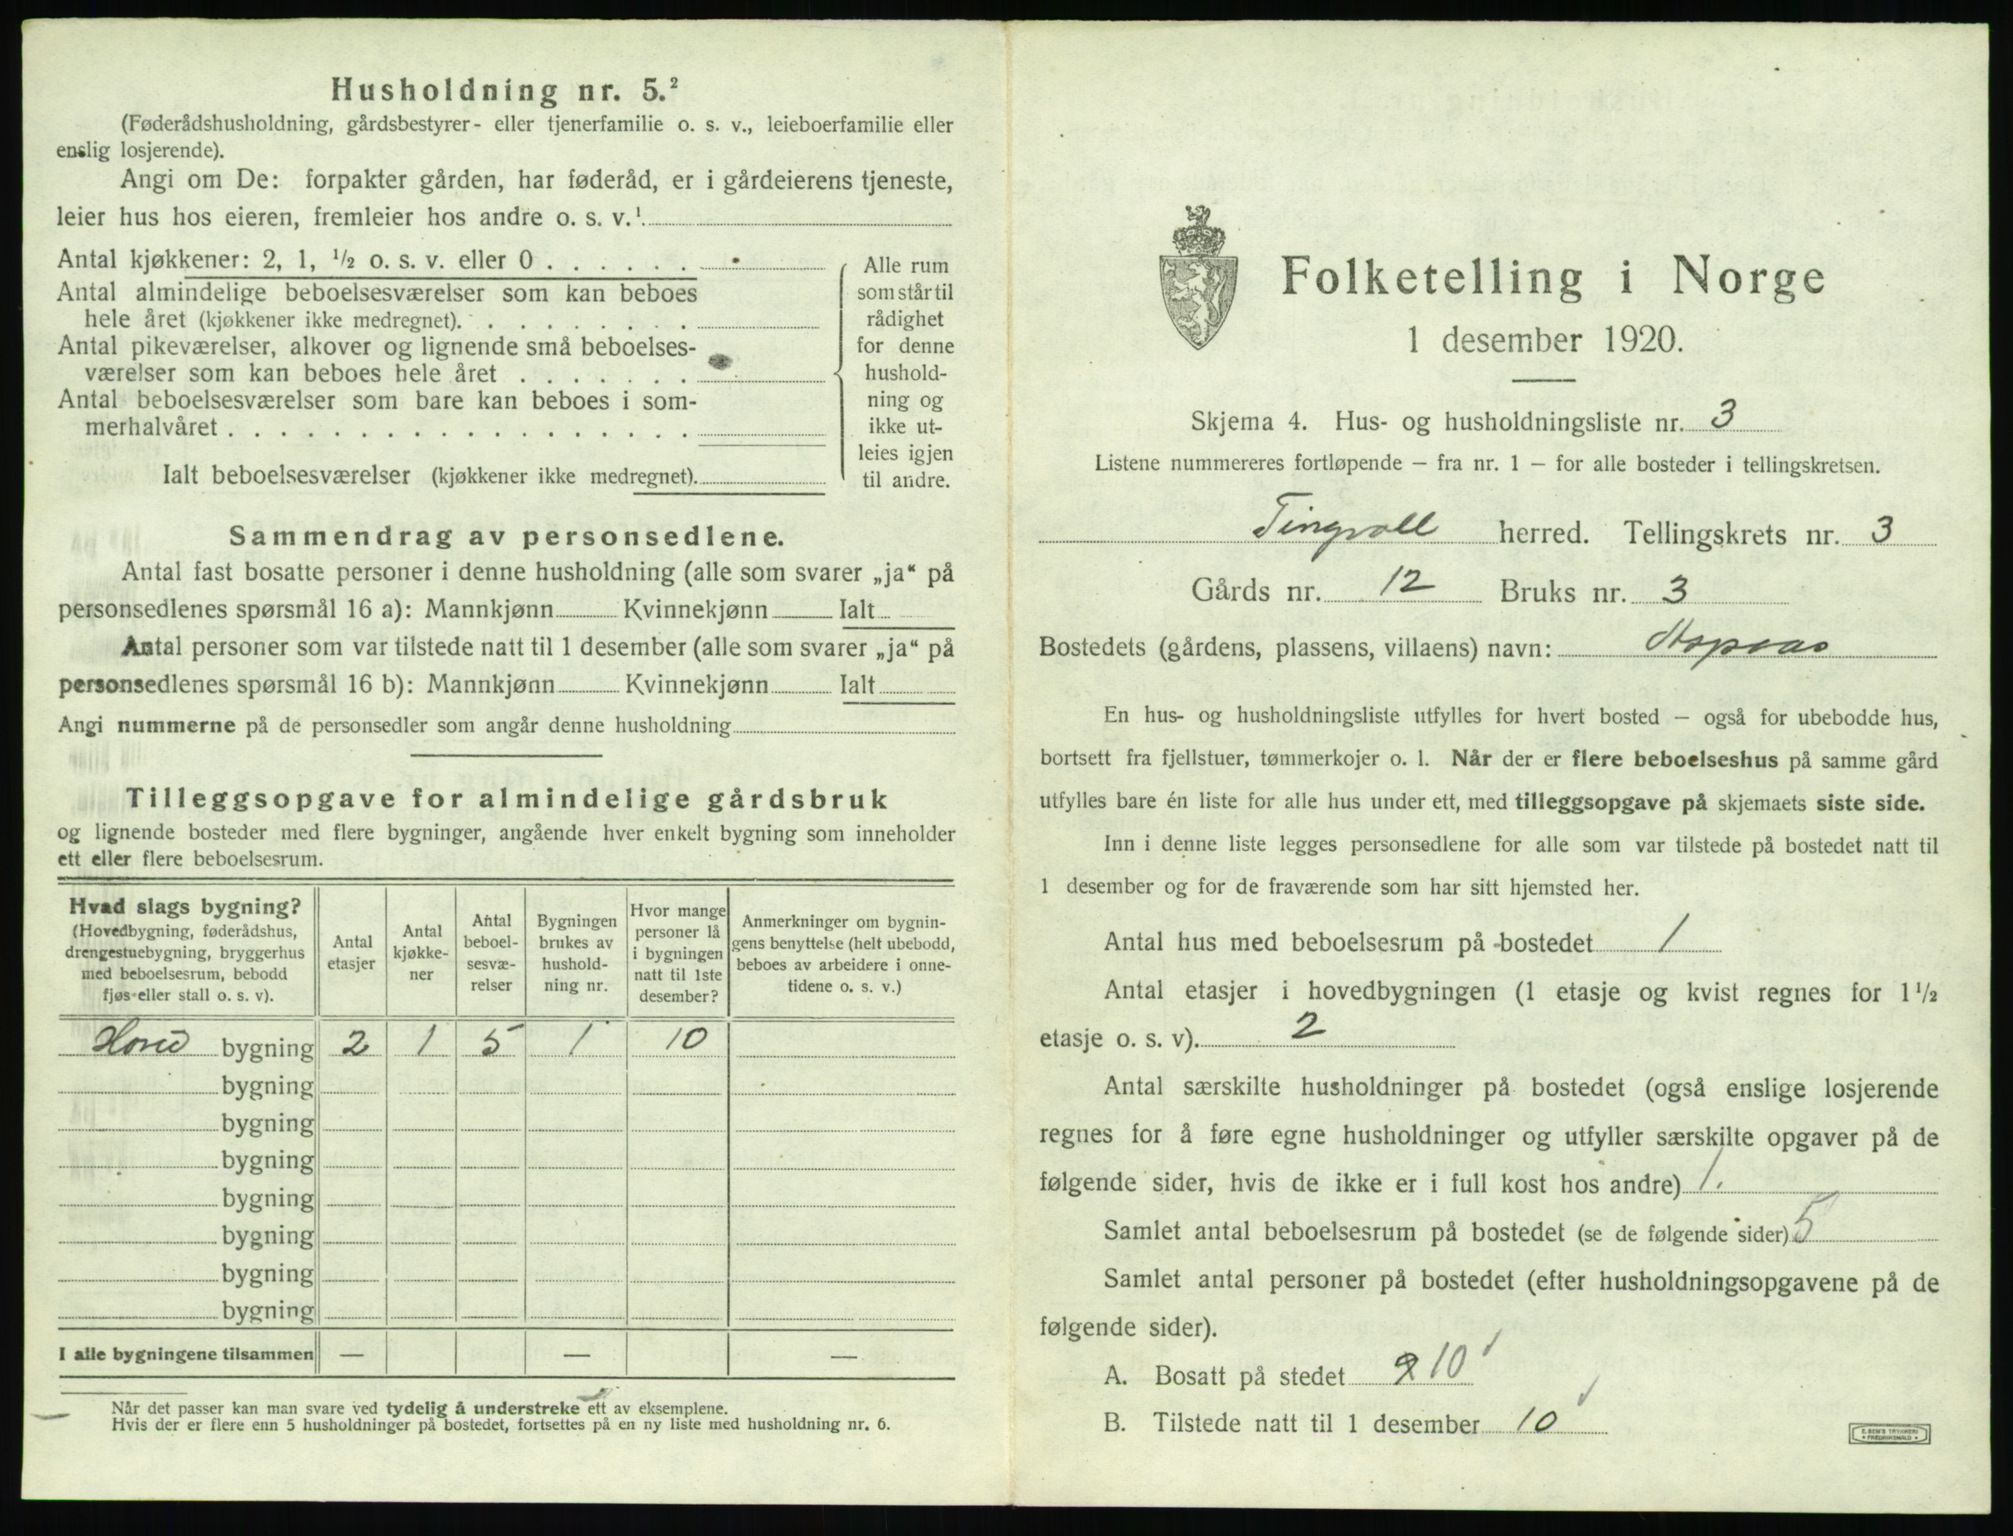 Husholdning nr. 5.²
(Føderådshusholdning, gårdsbestyrer- eller tjenerfamilie o. s. v., leieboerfamilie eller
enslig losjerende).
Angi om De: forpakter gården, har føderåd, er i gårdeierens tjeneste,
leier hus hos eieren, fremleier hos andre o. s. v.¹
Antal kjøkkener: 2, 1, ½ o. s. v. eller 0
Antal almindelige beboelsesværelser som kan beboes
hele året (kjøkkener ikke medregnet).
Antal pikeværelser, alkover og lignende små beboelses-
værelser som kan beboes hele året
Antal beboelsesværelser som bare kan beboes i som-
merhalvåret
Ialt beboelsesværelser (kjøkkener ikke medregnet).
Alle rum
som står til
rådighet
for denne
hushold-
ning og
ikke ut-
leies igjen
til andre.
Sammendrag av personsedlene.
Antal fast bosatte personer i denne husholdning (alle som svarer „ja“ på
personsedlenes spørsmål 16 a): Mannkjønn Kvinnekjønn Ialt
Antal personer som var tilstede natt til 1 desember (alle som svarer „ja“ på
personsedlenes spørsmål 16 b): Mannkjønn Kvinnekjønn Ialt
Angi nummerne på de personsedler som angår denne husholdning
Tilleggsopgave for almindelige gårdsbruk
og lignende bosteder med flere bygninger, angående hver enkelt bygning som inneholder
ett eller flere beboelsesrum.
Hvad slags bygning?
(Hovedbygning, føderådshus,
drengestuebygning, bryggerhus
med beboelsesrum, bebodd
fjøs eller stall o. s. v).
Antal
etasjer
Antal
kjøkke-
ner
Antal
beboel-
sesvæ-
relser
Bygningen
brukes av
hushold-
ning nr.
Hvor mange
personer lå
i bygningen
natt til 1ste
desember?
Anmerkninger om bygnin-
gens benyttelse (helt ubebodd,
beboes av arbeidere i onne-
tidene o. s. v.)
Hoved bygning 2 1 5 1 10
bygning
bygning
bygning
bygning
bygning
bygning
bygning
I alle bygningene tilsammen — — —
Når det passer kan man svare ved tydelig å understreke ett av eksemplene.
Hvis der er flere enn 5 husholdninger på bostedet, fortsettes på en ny liste med husholdning nr. 6.
Folketelling i Norge
1 desember 1920.
Skjema 4. Hus- og husholdningsliste nr. 3
Listene nummereres fortløpende – fra nr. 1 – for alle bosteder i tellingskretsen.
Tingvoll herred. Tellingskrets nr. 3
Gårds nr. 12 Bruks nr. 3
Bostedets (gårdens, plassens, villaens) navn:
En hus- og husholdningsliste utfylles for hvert bosted – også for ubebodde hus,
bortsett fra fjellstuer, tømmerkojer o. l. Når der er flere beboelseshus på samme gård
utfylles bare én liste for alle hus under ett, med tilleggsopgave på skjemaets siste side.
Inn i denne liste legges personsedlene for alle som var tilstede på bostedet natt til
1 desember og for de fraværende som har sitt hjemsted her.
Antal hus med beboelsesrum på bostedet 1
Antal etasjer i hovedbygningen (1 etasje og kvist regnes for 1½
etasje o. s. v). 2
Antal særskilte husholdninger på bostedet (også enslige losjerende
regnes for å føre egne husholdninger og utfyller særskilte opgaver på de
følgende sider, hvis de ikke er i full kost hos andre) 1.
Samlet antal beboelsesrum på bostedet (se de følgende sider) 5
Samlet antal personer på bostedet (efter husholdningsopgavene på de
følgende sider).
A. Bosatt på stedet 10
B. Tilstede natt til 1 desember 10
E. SEM'S TRYKKERI
FREDRIKSHALD